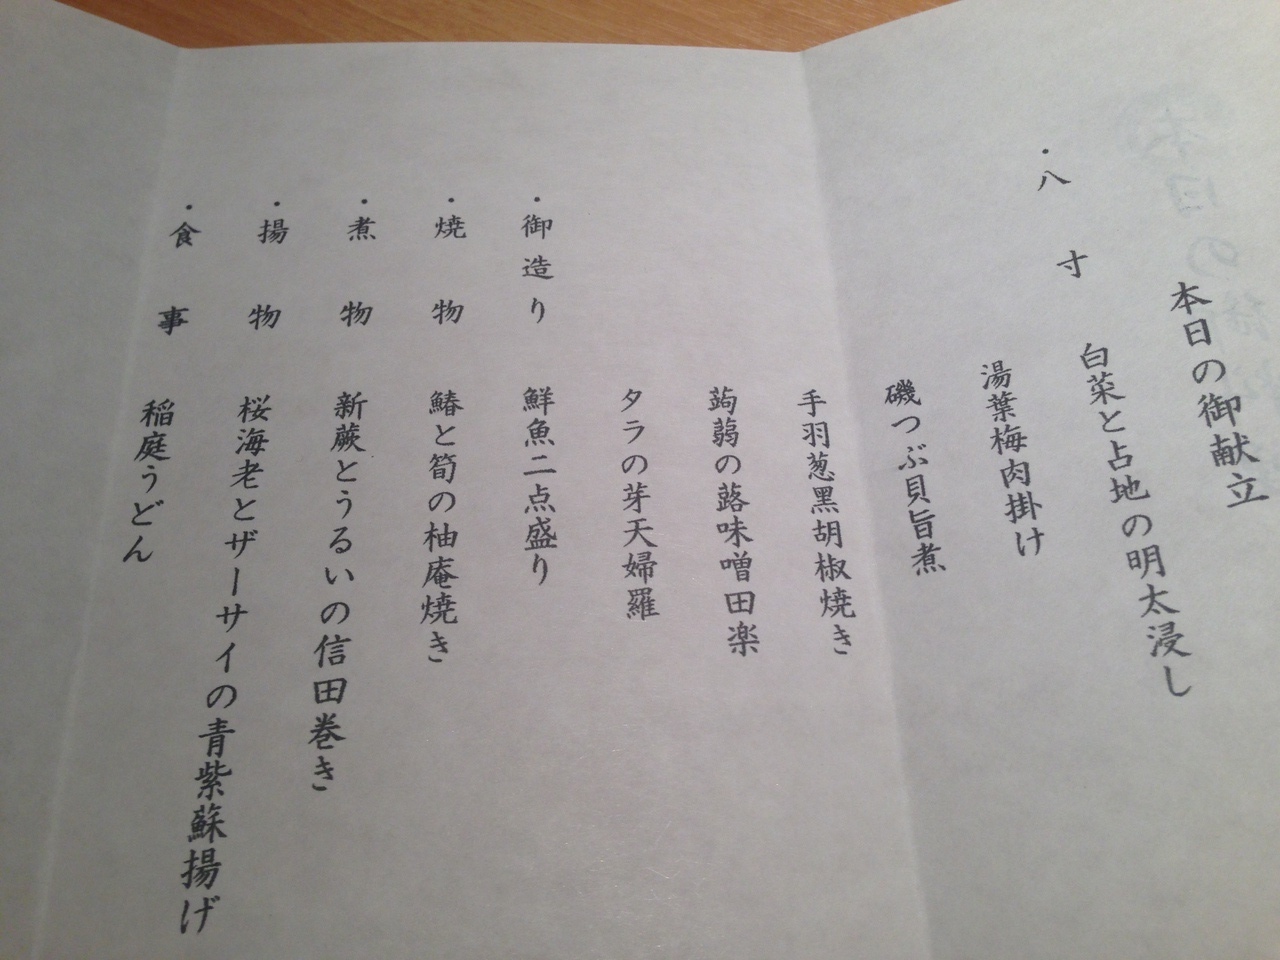 本日の御献立
・八寸　白菜と占地の明太浸し
湯葉梅肉掛け
磯つぶ貝旨煮
手羽葱黒胡椒焼き
蒟蒻の蕗味噌田楽
タラの芽天婦羅
・御造り　鮮魚二点盛り
・焼物　鰆と筍の柚庵焼き
・煮物　新蕨とうるいの信田巻き
・揚物　桜海老とザーサイの青紫蘇揚げ
・食事　稲庭うどん